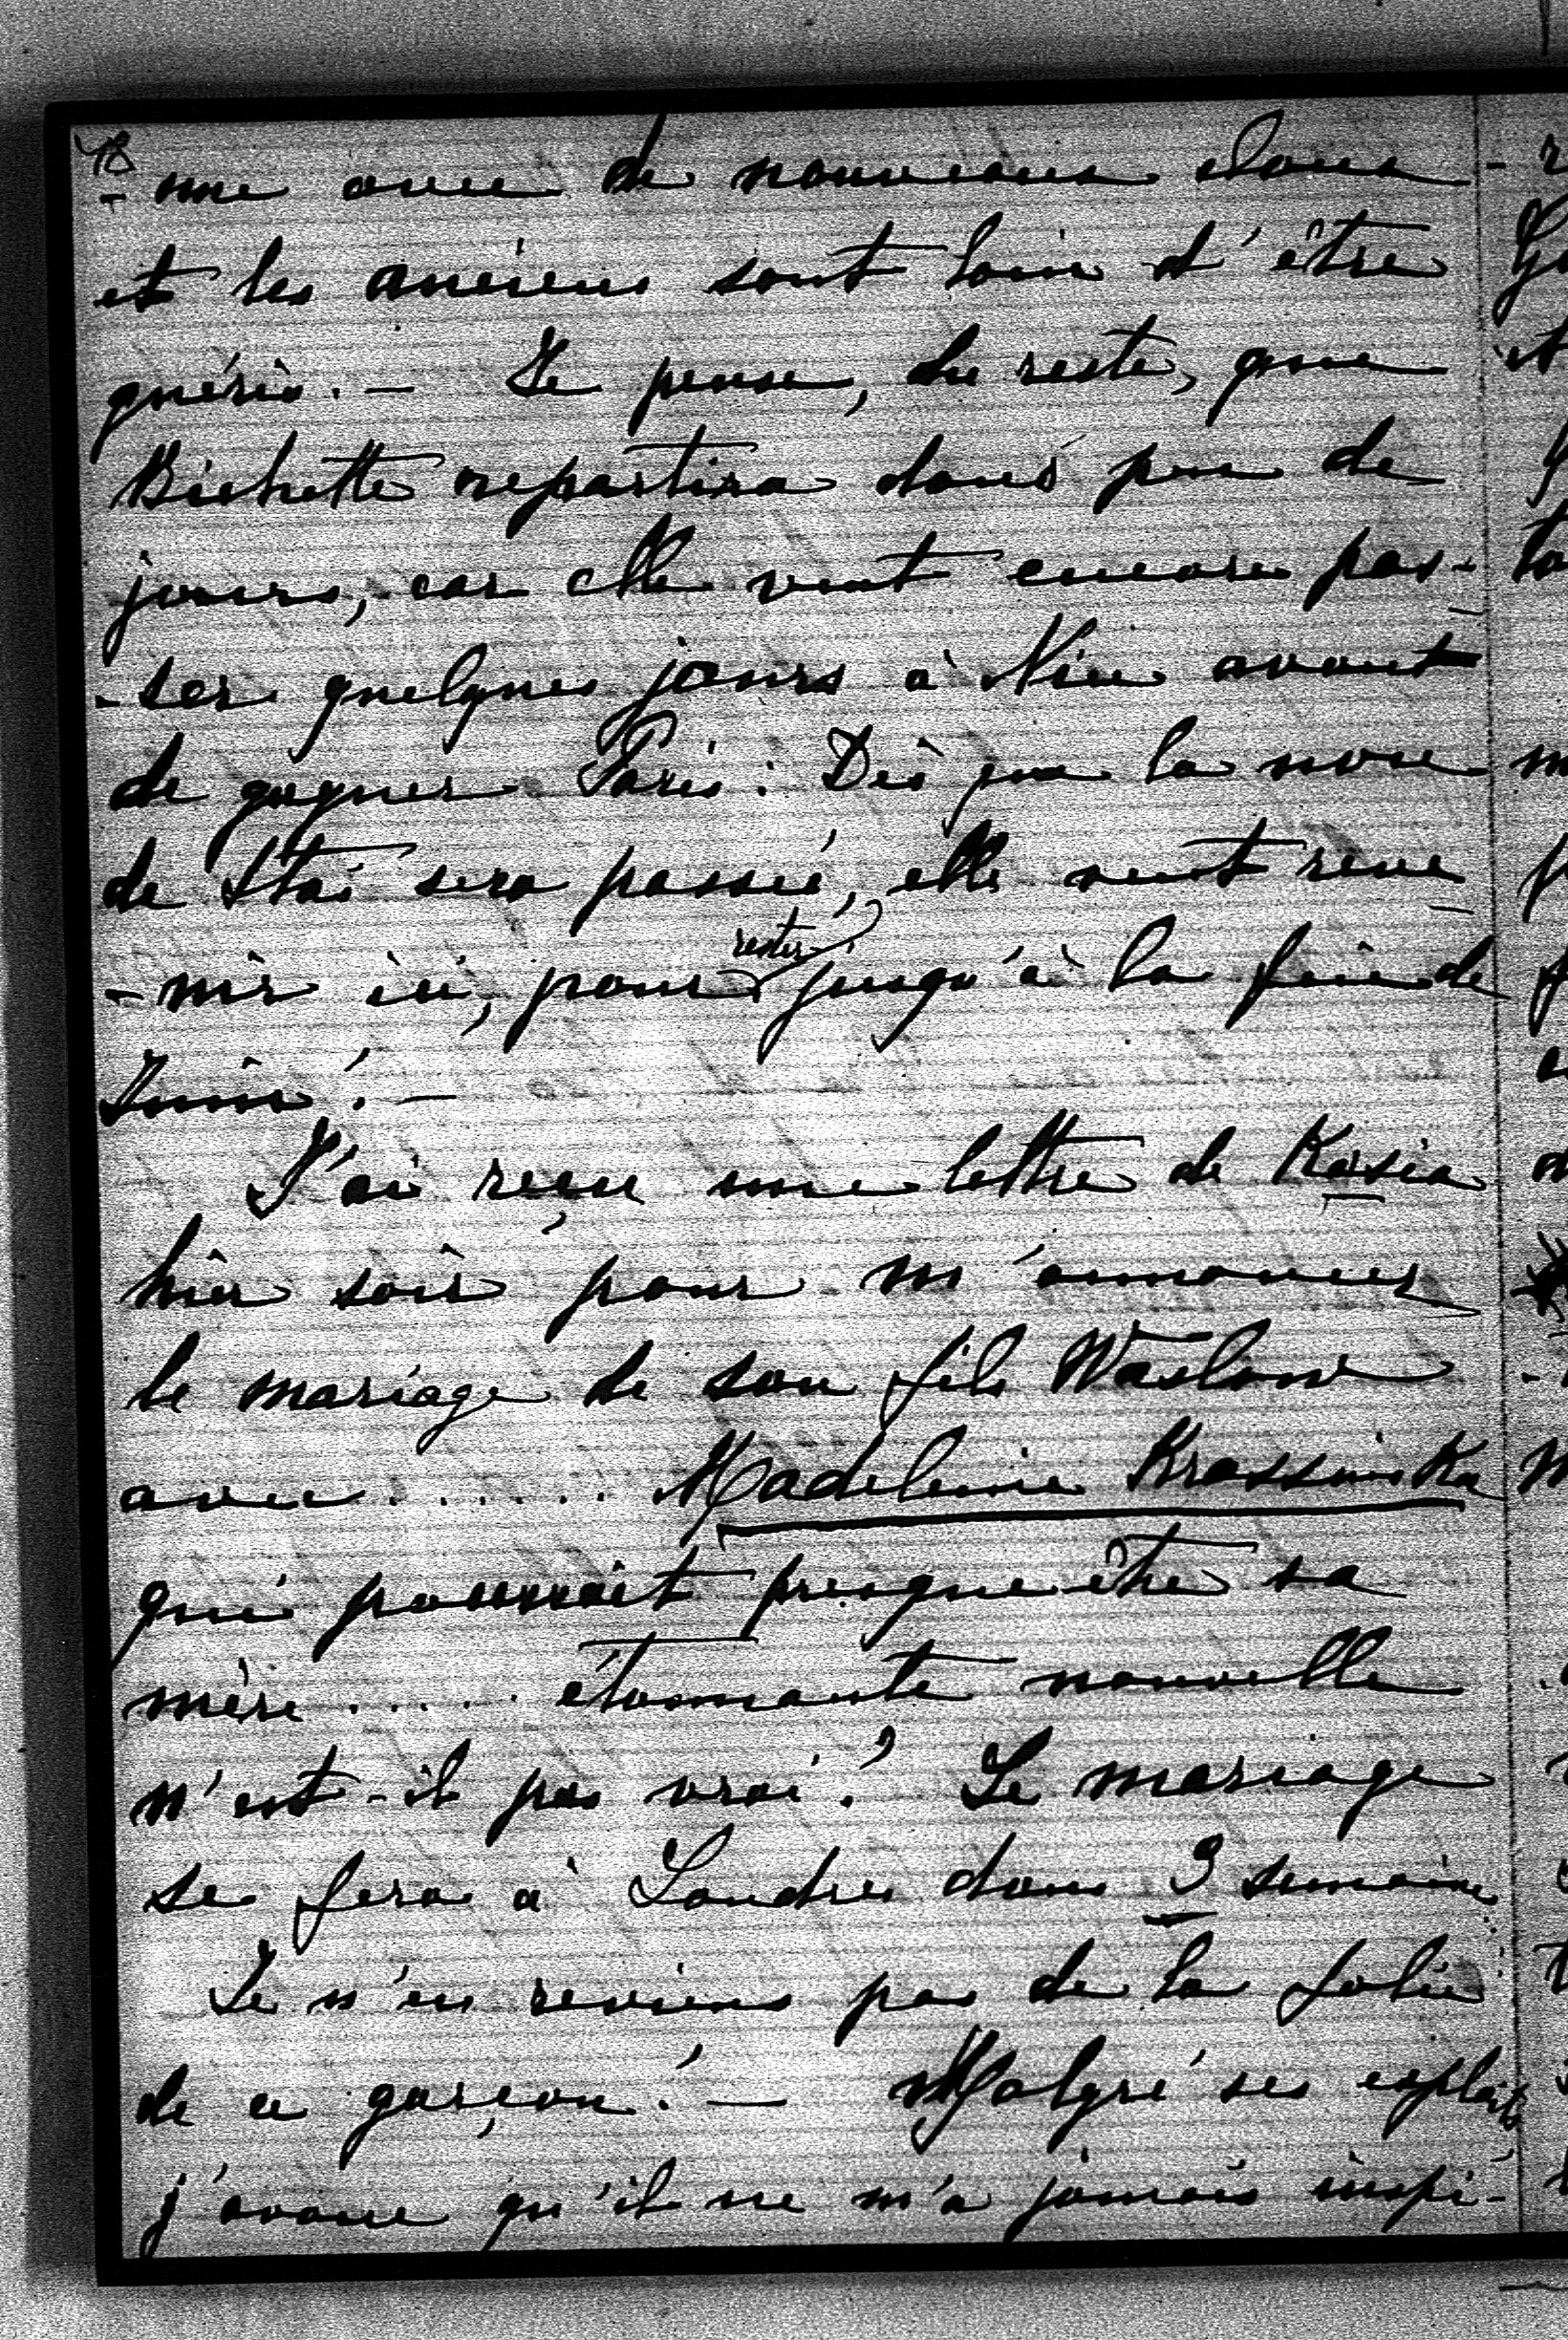 48
- me avec de nouveaux clous
et les anciens sont loin d'être
guéris. — Je pense, du reste, que
Bichette repartira dans peu de
jours, car elle veut encore pas-
-ser quelques jours à Nice avant
de gagner Paris. Dès que la noce
de Staś sera passée, elle veut reve
-nir ici, pour rester jusqu'à la fin de
Juin! —
J'ai reçu une lettre de Kasia
hier soir pour m'annoncer
le mariage de son fils Waclaw
avec ...... Madeleine Krassinska
qui pourrait presque être sa
mère ..... étonnante nouvelle
n'est-il pas vrai? Le mariage
se fera à Londres dans 3 semaines.
Je n'en reviens pas de la folie
de ce garçon! — Malgré ses exploits
j'avoue qu'il ne m'a jamais inspi-